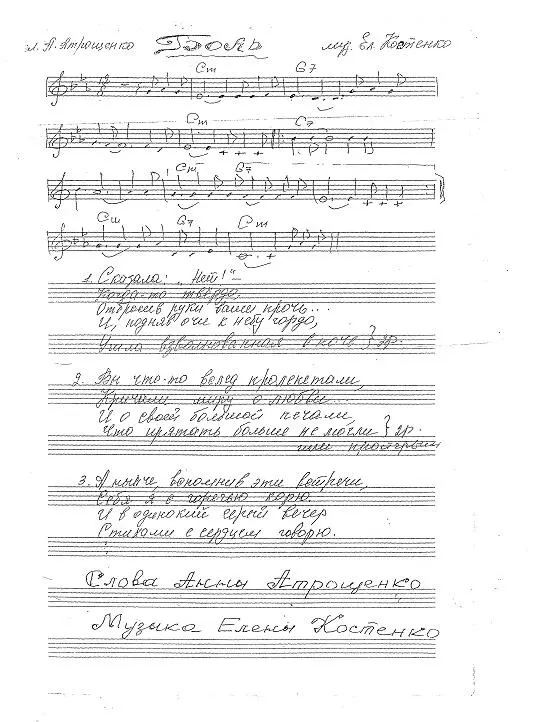 сл. А. Атрощенко Гроздь муз. Ел. Костенко
Cm G7
Cm C7
Cm G7
Cm G7 Cm
1. Сказала: „Нет!“ –
Когда-то твёрдо,
Отбросив руки ваши прочь...
И, подняв очи к небу гордо,
Ушла взволнованная в ночь } 2р.
2. Вы что-то вслед пролепетали,
Кричали миру о любви
И о своей большой печали,
Что прятать больше не могли } 2р.
или проигрыш
3. А нынче, вспомнив эти встречи,
Себя я с горечью корю
И в одинокий серый вечер
Стихами с сердцем говорю.
Слова Анны Атрощенко
Музыка Елены Костенко